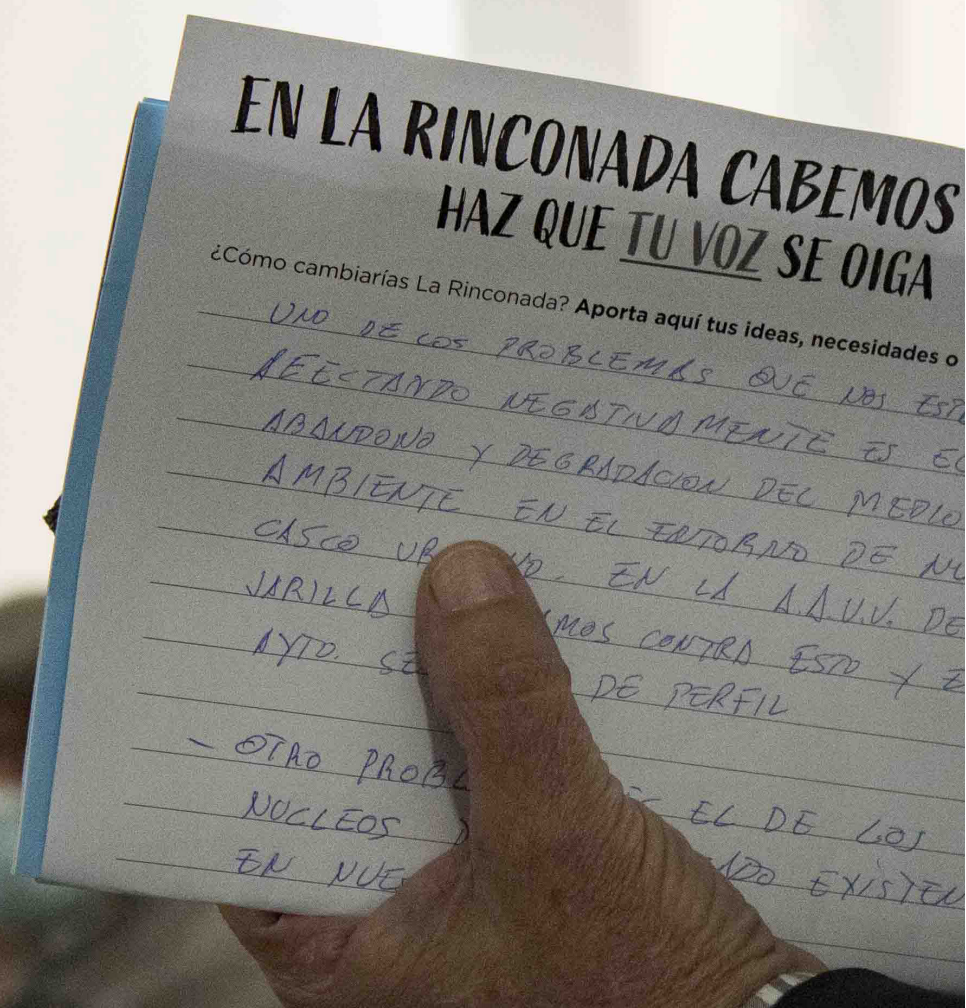 EN LA RINCONADA CABEMOS
HAZ QUE TU VOZ SE OIGA
¿Cómo cambiarías La Rinconada? Aporta aquí tus ideas, necesidades o
UNO DE LOS PROBLEMAS QUE NOS
AFECTANDO NEGATIVAMENTE ES EL
ABANDONO Y DEGRADACION DEL MEDIO
AMBIENTE EN EL ENTORNO DE
CASCO EN LA A.A.V.V. DE
JARILLA CONTRA ESTO Y
AYTO. DE PERFIL
- OTRO EL DE LOS
NUCLEOS
EN EXISTEN